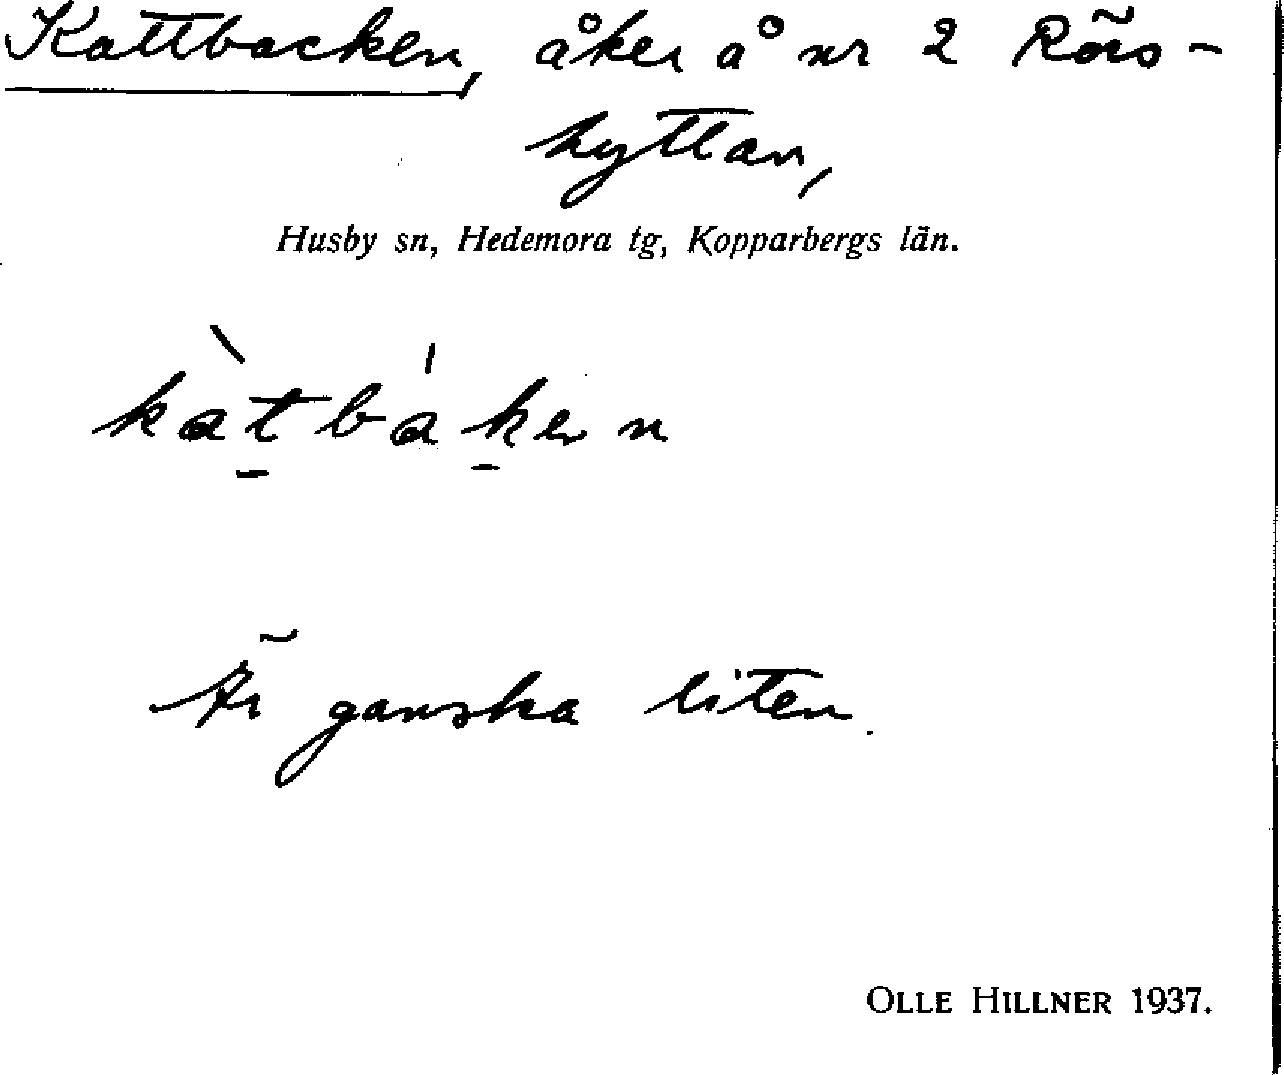 Kattbacken, åker å nr 2 Rörs-
hyttan,
Husby sn, Hedemora tg, Kopparbergs län.
kàt̠bák̠en
Är ganska liten.
OLLE HILLNER 1937.